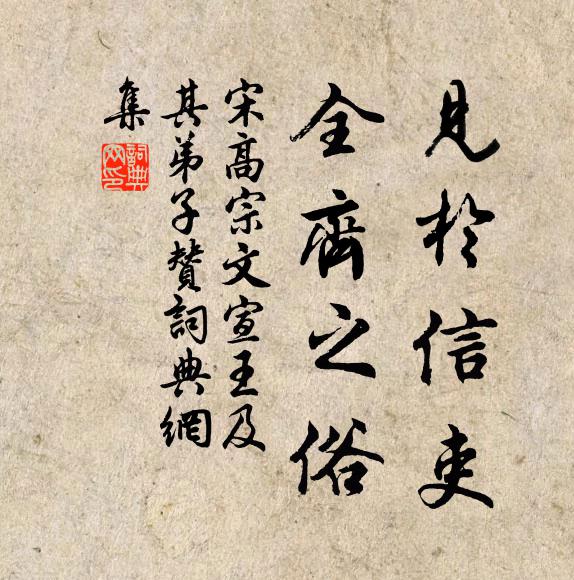 見於信吏
全齊之俗
宋高宗文宣王及
其弟子贊詞典網
集
詞典網印